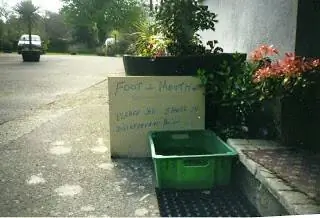 FOOT & MOUTH
PLEASE DIP SHOES IN
DISINFECTANT